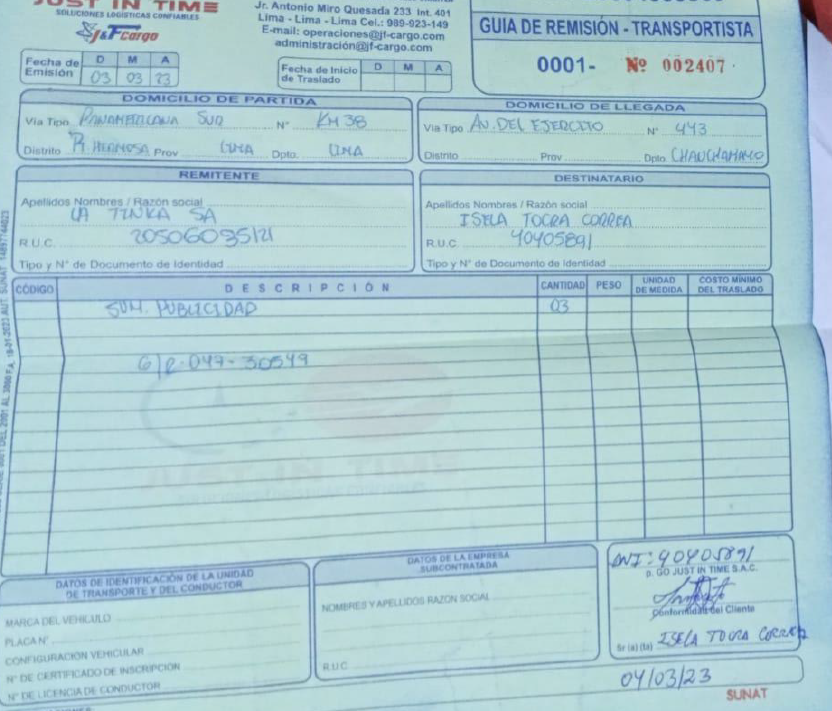 JUST IN TIME
SOLUCIONES LOGÍSTICAS CONFIABLES
J&F Cargo
Jr. Antonio Miro Quesada 233 Int. 401
Lima - Lima - Lima Cel.: 989-923-149
E-mail: operaciones@jf-cargo.com
administración@jf-cargo.com
GUIA DE REMISIÓN - TRANSPORTISTA
0001- Nº 002407
Fecha de Emisión D M A
03 03 23
Fecha de Inicio de Traslado D M A
DOMICILIO DE PARTIDA
Via Tipo PANAMERICANA SUR N° KM 38
Distrito P. HERMOSA Prov LIMA Dpto. LIMA
DOMICILIO DE LLEGADA
Via Tipo AV. DEL EJERCITO N° 443
Distrito Prov Dpto CHANCHAMAYO
REMITENTE
Apellidos Nombres / Razón social
LA TINKA SA
R.U.C. 20506035121
Tipo y N° de Documento de Identidad
DESTINATARIO
Apellidos Nombres / Razón social
ISELA TOCRA CORREA
R.U.C. 40405891
Tipo y N° de Documento de Identidad
CÓDIGO DESCRIPCIÓN CANTIDAD PESO UNIDAD DE MEDIDA COSTO MÍNIMO DEL TRASLADO
SUM. PUBLICIDAD 03
G/R-047-30549
JUST IN TIME
DATOS DE IDENTIFICACIÓN DE LA UNIDAD
DE TRANSPORTE Y DEL CONDUCTOR
MARCA DEL VEHICULO
PLACA N°
CONFIGURACIÓN VEHICULAR
N° DE CERTIFICADO DE INSCRIPCIÓN
N° DE LICENCIA DE CONDUCTOR
DATOS DE LA EMPRESA
SUBCONTRATADA
NOMBRES Y APELLIDOS RAZÓN SOCIAL
R.U.C.
DNI: 40405891
p. GO JUST IN TIME S.A.C.
Conformidad del Cliente
Sr (a) (ta) ISELA TOCRA CORREA
04/03/23
SUNAT